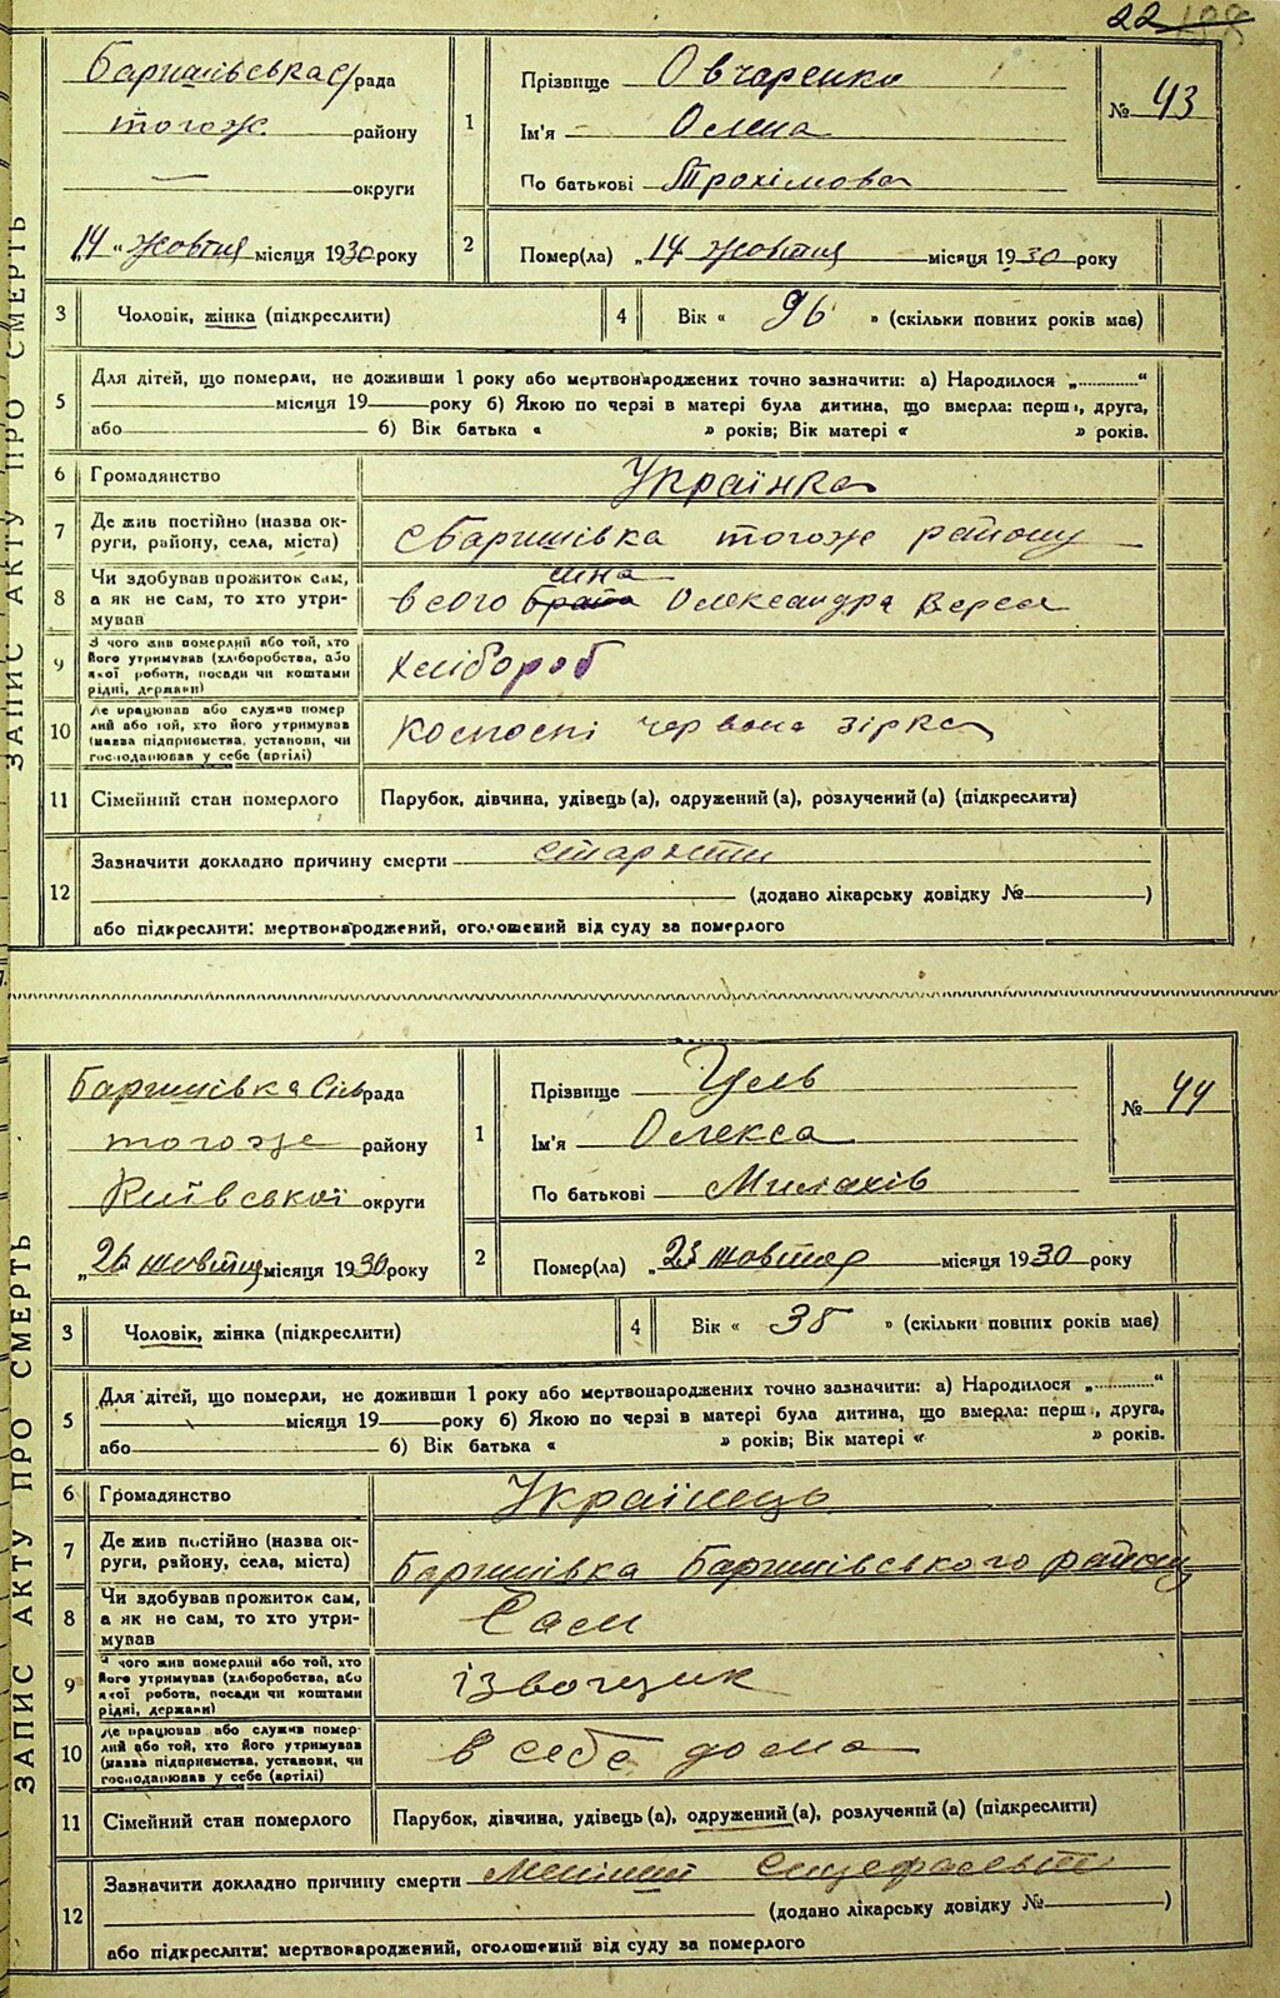 22 188
ЗАПИС АКТУ ПРО СМЕРТЬ
Баришівська с/рада
тогож району
— округи
14 " жовтня місяця 1930 року
1
Прізвище Овчаренко
Ім'я Олена
По батькові Трохімова
№ 43
2
Помер(ла) „14 жовтня місяця 1930 року
3 Чоловік, жінка (підкреслити)
4 Вік « 96 » (скільки повних років має)
5 Для дітей, що померли, не доживши 1 року або мертвонароджених точно зазначити: а) Народилося „............“
місяця 19 року б) Якою по черзі в матері була дитина, що вмерла: перша, друга,
або б) Вік батька « » років; Вік матері « » років.
6 Громадянство Українка
7 Де жив постійно (назва округи, району, села, міста) с Баришівка тогоже району
8 Чи здобував прожиток сам, а як не сам, то хто утримував в сого брата сина Олександра
9 З чого жив померлий або той, хто його утримував (хліборобства, або якої роботи, посади чи коштами рідні, держави) хлібороб
10 Де працював або служив померлий або той, хто його утримував (назва підприємства, установи, чи господарював у себе (артілі) червона зірка
11 Сімейний стан померлого Парубок, дівчина, удівець(а), одружений(а), розлучений(а) (підкреслити)
12 Зазначити докладно причину смерти старости
(додано лікарську довідку № )
або підкреслити: мертвонароджений, оголошений від суду за померлого
ЗАПИС АКТУ ПРО СМЕРТЬ
Баришівка Сільрада
тогоже району
Київської округи
„26 жовтня місяця 1930 року
1
Прізвище
Ім'я Олекса
По батькові
№ 44
2
Помер(ла) „23 жовтня місяця 1930 року
3 Чоловік, жінка (підкреслити)
4 Вік « 38 » (скільки повних років має)
5 Для дітей, що померли, не доживши 1 року або мертвонароджених точно зазначити: а) Народилося „............“
місяця 19 року б) Якою по черзі в матері була дитина, що вмерла: перша, друга,
або б) Вік батька « » років; Вік матері « » років.
6 Громадянство Українець
7 Де жив постійно (назва округи, району, села, міста) Баришівка Баришівського району
8 Чи здобував прожиток сам, а як не сам, то хто утримував Сам
9 З чого жив померлий або той, хто його утримував (хліборобства, або якої роботи, посади чи коштами рідні, держави) ізвощик
10 Де працював або служив померлий або той, хто його утримував (назва підприємства, установи, чи господарював у себе (артілі) в себе дома
11 Сімейний стан померлого Парубок, дівчина, удівець(а), одружений(а), розлучений(а) (підкреслити)
12 Зазначити докладно причину смерти
(додано лікарську довідку № )
або підкреслити: мертвонароджений, оголошений від суду за померлого